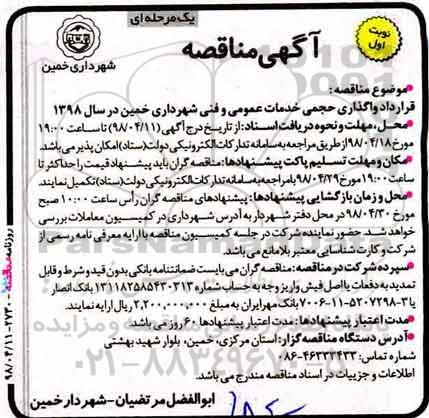 یک مرحله ای
نوبت اول
آگهی مناقصه
شهرداری خمین
•موضوع مناقصه:
قرارداد واگذاری حجمی خدمات عمومی و فنی شهرداری خمین در سال ۱۳۹۸
•محل، مهلت و نحوه دریافت اسناد: از تاریخ درج آگهی (۹۸/۰۴/۱۱) تا ساعت ۱۹:۰۰
مورخ ۹۸/۰۴/۱۸ از طریق مراجعه به سامانه تدارکات الکترونیکی دولت (ستاد) امکان پذیر می باشد.
•مکان و مهلت تسلیم پاکت پیشنهادها: مناقصه گران باید پیشنهاد قیمت را حداکثر تا
ساعت ۱۹:۰۰ مورخ ۹۸/۰۴/۲۹ با مراجعه به سامانه تدارکات الکترونیکی دولت (ستاد) تکمیل نمایند.
•محل و زمان بازگشایی پیشنهادها: پیشنهادهای مناقصه گران رأس ساعت ۱۰:۰۰ صبح
مورخ ۹۸/۰۴/۳۰ در محل دفتر شهردار به آدرس شهرداری در کمیسیون معاملات بررسی
خواهد شد. حضور نماینده شرکت در جلسه کمیسیون مناقصه با ارایه معرفی نامه رسمی از
شرکت و کارت شناسایی معتبر بلامانع می باشد.
•سپرده شرکت در مناقصه: مناقصه گران می بایست ضمانتنامه بانکی بدون قید و شرط و قابل
تمدید به دفعات یا اصل فیش واریز وجه به حساب شماره ۱۳۱۱۸۲۵۸۵۴۳۰۳۱۳ بانک انصار
یا ۳-۵۲۰۷۲۹۸-۱۱-۷۰۰۶ بانک مهر ایران به مبلغ ۲,۲۰۰,۰۰۰,۰۰۰ ریال ارایه نمایند.
•مدت اعتبار پیشنهادها: مدت اعتبار پیشنهادها ۶۰ روز می باشد.
•آدرس دستگاه مناقصه گزار: استان مرکزی، خمین، بلوار شهید بهشتی
شماره تماس: ۴۶۲۳۳۴۳۳-۰۸۶
اطلاعات و جزییات در اسناد مناقصه مندرج می باشد.
ابوالفضل مرتضیان - شهردار خمین
روزنامه مناقصه ۲۷۳۰ - ۹۸/۰۴/۱۱
ParsNamadData
۰۲۱-۸۸۳۴۹۶۷۰